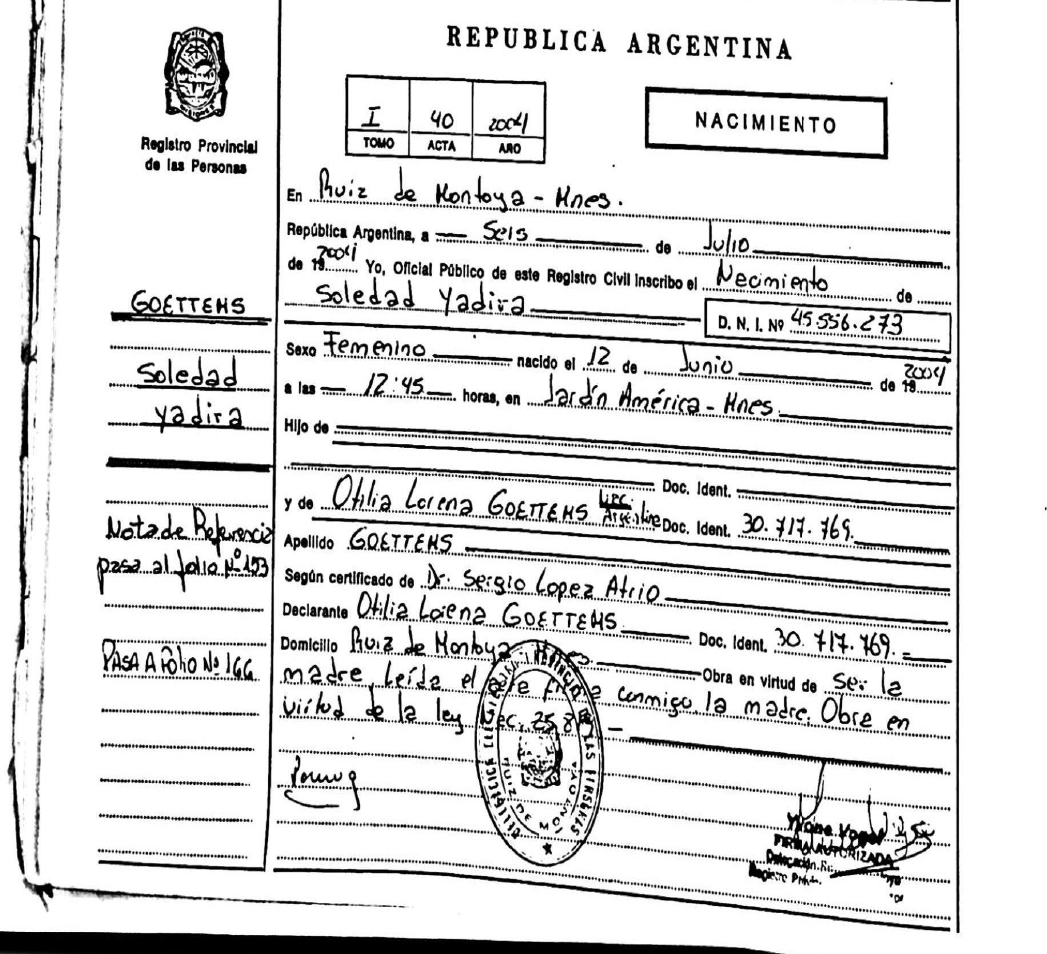 REPUBLICA ARGENTINA
Registro Provincial
de las Personas
I 40 2004
TOMO ACTA AÑO
NACIMIENTO
En Ruiz de Montoya - Mnes.
República Argentina, a Seis de Julio
de 19 2004 Yo, Oficial Público de este Registro Civil inscribo el Necimiento de
Soledad Yadira
D. N. I. Nº 45.556.273
Sexo Femenino nacido el 12 de Junio de 19 2004
a las 12:45 horas, en Jardín América - Mnes.
Hijo de
Doc. Ident.
y de Otilia Lorena GOETTEMS Argentina Doc. Ident. 30.717.769.
Apellido GOETTEMS
Según certificado de Dr. Sergio Lopez Atrio
Declarante Otilia Lorena GOETTEMS Doc. Ident. 30.717.769.
Domicilio Ruiz de Montoya Obra en virtud de Ser la
madre. Leída el conmigo la madre. Obre en
virtud de la ley
GOETTEMS
Soledad
Yadira
Nota de Referencia
pasa al folio Nº 153
PASA A Folio Nº 166
RUIZ DE MONTOYA
Yvone Vogel
FIRMA AUTORIZADA
Delegación